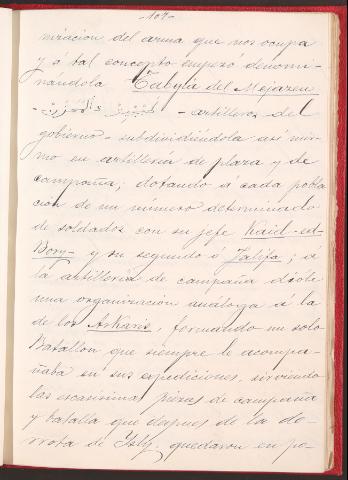 -104-
nización del arma que nos ocupa
y a tal concepto empezó denomi-
nándola Tabyia del Mejazen
- artilleros del
gobierno - subdividiéndola así mis-
mo en artillería de plaza y de
campaña; dotando á cada pobla
ción de un número determinado
de soldados con su jefe Kaid-el-
Bory- y su segundo ó Jalifa; á
la artillería de campaña dióle
una organización análoga á la
de los Askaris, formando un solo
Batallon que siempre le acompa-
ñaba en sus expediciones, sirviendo
las escasísimas piezas de campaña
y batalla que despues de la de-
rrota de Isly, quedaron en po-